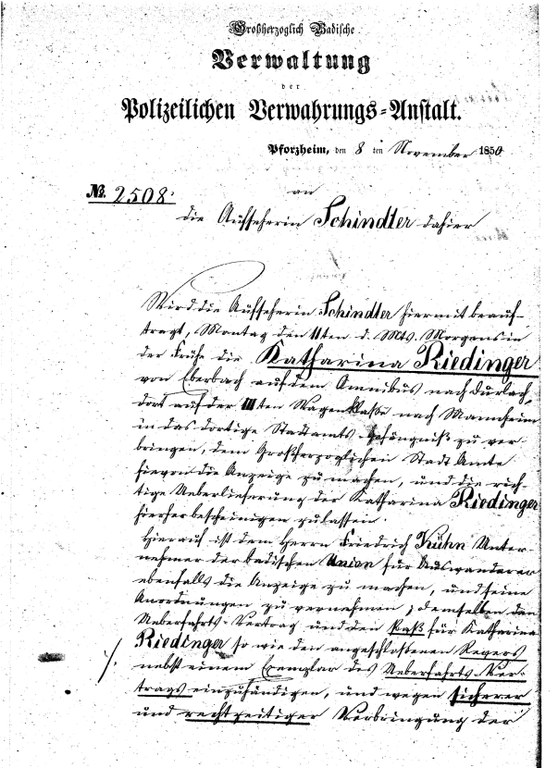 Großherzoglich Badische
Verwaltung
der
Polizeilichen Verwahrungs-Anstalt.
Pforzheim, den 8 ten November 1850
№. 2508.
an
die Aufseherin Schindler dahier
Wird die Aufseherin Schindler hiermit beauf-
tragt, Montag den 11ten d. Mts. Morgens in
der Frühe die Katharina Riedinger
von Eberbach auf dem Omnibus nach Durlach,
dort auf der IIIten Wagenklasse nach Mannheim
in das dortige Stadtamts-Gefängniß zu ver-
bringen, dem Großherzoglichen Stadt Amte
hievon die Anzeige zu machen, und die rich-
tige Ueberlieferung der Katharina Riedinger
hierher bescheinigen zu lassen.
Hierauf ist dem Herrn Friedrich Kühn Unter-
nehmer der badischen Union für Auswanderer
ebenfalls die Anzeige zu machen, und seine
Anordnungen zu vernehmen, demselben den
Ueberfahrts-Vertrag und den Paß für Katharina
Riedinger so wie den angeschlossenen Revers
nebst einem Exemplar des Ueberfahrts-Ver-
trags einzuhändigen, und wegen sicherer
und rechtzeitiger Verbringung der